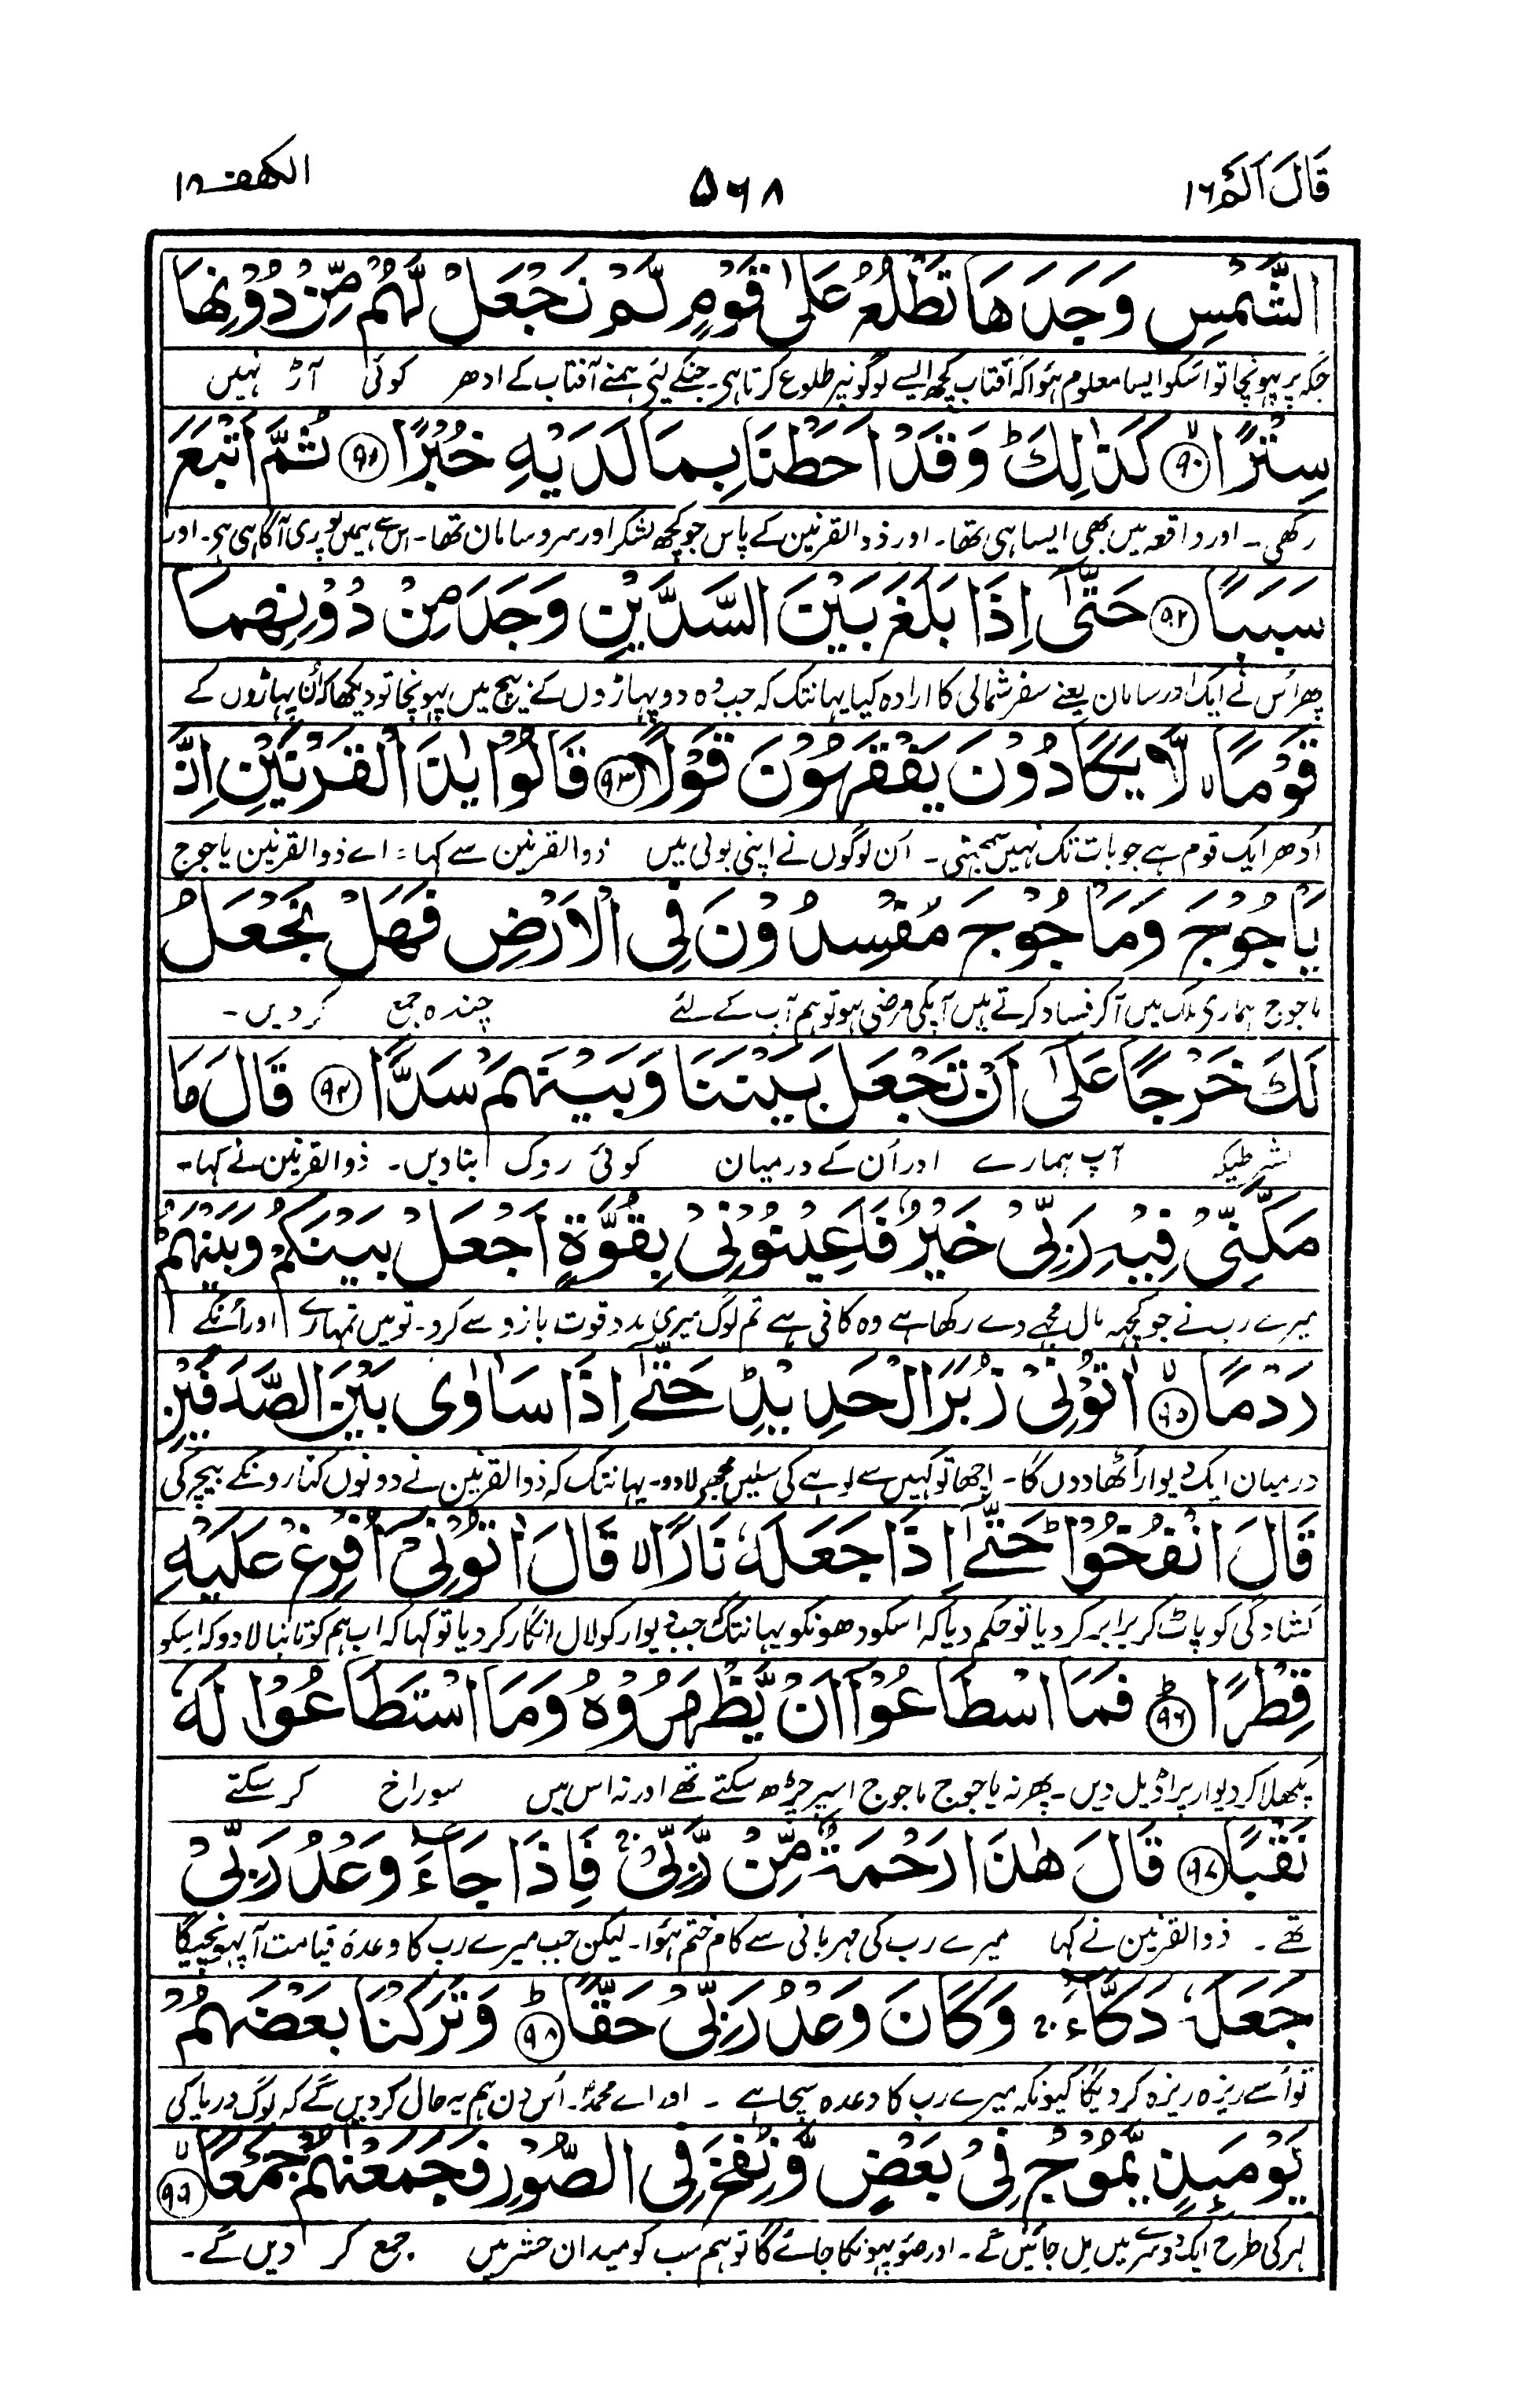 قَالَ اَلَمۡ ١٦
٥٦٨
الکھف ١٨
الشَّمْسِ وَجَدَهَا تَطْلُعُ عَلٰى قَوْمٍ لَّمْ نَجْعَلْ لَّهُمْ مِّنْ دُوْنِهَا
جگہ پر پہونچا تو اسکو ایسا معلوم ہؤا کہ آفتاب کچھ ایسے لوگونپر طلوع کرتا ہی۔ جنکے لئی ہمنے آفتاب کے ادھر کوئی آڑ نہیں
سِتْرًا ۙ۹۰ كَذٰلِكَ ؕ وَقَدْ اَحَطْنَا بِمَا لَدَيْهِ خُبْرًا ۹۱ ثُمَّ اَتْبَعَ
رکھی۔ اور واقعہ میں بھی ایسا ہی تھا۔ اور ذو القرنین کے پاس جو کچھ لشکر اور سر و سامان تھا۔ اس سے ہمیں پوری آگاہی ہی۔ اور
سَبَبًا ۹۲ حَتّٰٓى اِذَا بَلَغَ بَيْنَ السَّدَّيْنِ وَجَدَ مِنْ دُوْنِهِمَا
پھر اُس نے ایک اور سامان یعنے سفر شمالی کا ارادہ کیا یہانتک کہ جب وہ دو پہاڑوں کے بیچ میں پہونچا تو دیکھا کہ اُن پہاڑوں کے
قَوْمًا ۙ لَّا يَكَادُوْنَ يَفْقَهُوْنَ قَوْلًا ۹۳ قَالُوْا يٰذَا الْقَرْنَيْنِ اِنَّ
اُدھر ایک قوم ہے جو بات تک نہیں سمجہتی۔ اُن لوگوں نے اپنی بولی میں ذو القرنین سے کہا: اے ذو القرنین یاجوج
يَاْجُوْجَ وَمَاْجُوْجَ مُفْسِدُوْنَ فِى الْاَرْضِ فَهَلْ نَجْعَلُ
ماجوج ہماری ملک میں آکر فساد کرتے ہیں آپکی مرضی ہو تو ہم آپ کے لئے چندہ جمع کر دیں۔
لَكَ خَرْجًا عَلٰٓى اَنْ تَجْعَلَ بَيْنَنَا وَبَيْنَهُمْ سَدًّا ۹۴ قَالَ مَا
بشرطیکہ آپ ہمارے اور اُن کے درمیان کوئی روک بنا دیں۔ ذو القرنین نے کہا۔
مَكَّنِّىْ فِيْهِ رَبِّىْ خَيْرٌ فَاَعِيْنُوْنِىْ بِقُوَّةٍ اَجْعَلْ بَيْنَكُمْ وَبَيْنَهُمْ
میرے رب نے جو کچہہ مال مجھے دے رکھا ہے وہ کافی ہے تم لوگ میری مدد قوت بازو سے کرو۔ تو میں تمہارے اور اُنکے
رَدْمًا ۙ۹۵ اٰتُوْنِىْ زُبَرَ الْحَدِيْدِ ؕ حَتّٰٓى اِذَا سَاوٰى بَيْنَ الصَّدَفَيْنِ
درمیان ایک دیوار اُٹھا دوں گا۔ اچھا تو کہیں سے لوہے کی سلیں مجھ لا دو۔ یہانتک کہ ذو القرنین نے دونوں کنارونکے بیچ کی
قَالَ انْفُخُوْا ؕ حَتّٰٓى اِذَا جَعَلَهٗ نَارًا ۙ قَالَ اٰتُوْنِىْٓ اُفْرِغْ عَلَيْهِ
کشادگی کو پاٹ کر برابر کر دیا تو حکم دیا کہ اسکو دھونکو یہانتک جب دیوار کو لال انگار کر دیا تو کہا کہ اب ہم کو تانبا لا دو کہ اسکو
قِطْرًا ؕ۹۶ فَمَا اسْطَاعُوْٓا اَنْ يَّظْهَرُوْهُ وَمَا اسْتَطَاعُوْا لَهٗ
پگھلا کر دیوار پر انڈیل دیں۔ پھر نہ یاجوج ماجوج اسپر چڑھ سکتے تھے اور نہ اس میں سوراخ کر سکتے
نَقْبًا ۹۷ قَالَ هٰذَا رَحْمَةٌ مِّنْ رَّبِّىْ ۚ فَاِذَا جَآءَ وَعْدُ رَبِّىْ
تھے۔ ذو القرنین نے کہا میرے رب کی مہربانی سے کام ختم ہؤا۔ لیکن جب میرے رب کا وعدہ قیامت آ پہونچیگا
جَعَلَهٗ دَكَّآءَ ۚ وَكَانَ وَعْدُ رَبِّىْ حَقًّا ؕ۹۸ وَتَرَكْنَا بَعْضَهُمْ
تو اُسے ریزہ ریزہ کر دیگا کیونکہ میرے رب کا وعدہ سچا ہے۔ اور اے محمدؐ۔ اُس دن ہم یہ حال کر دیں گے کہ لوگ دریا کی
يَوْمَئِذٍ يَّمُوْجُ فِىْ بَعْضٍ وَّنُفِخَ فِى الصُّوْرِ فَجَمَعْنٰهُمْ جَمْعًا ۙ۹۹
لہر کی طرح ایک دوسرے میں مل جائیں گے۔ اور صور پھونکا جائے گا تو ہم سب کو میدان حشر میں جمع کر دیں گے۔